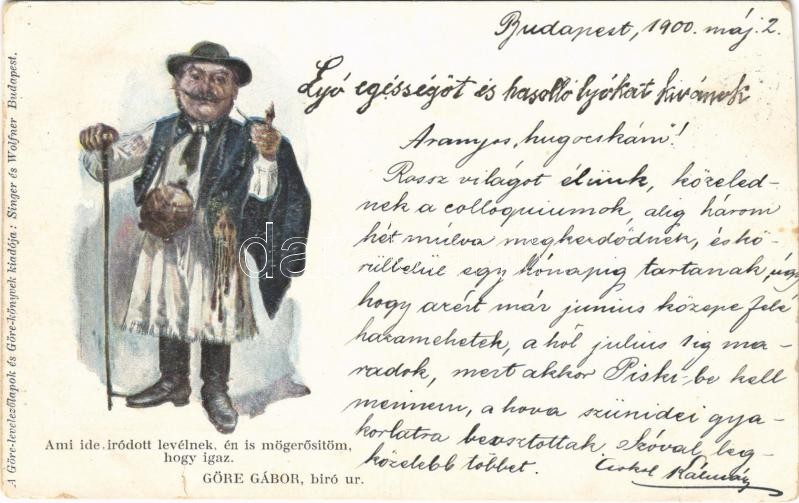 Budapest, 1900. máj. 2.
Lyó egésségöt és hasolló lyókat kivánok
Aranyos, hugocskám!
Rossz világot élünk, közeled-
nek a colloquiumok, alig három
hét múlva megkezdődnek, és kö-
rülbelül egy hónapig tartanak, úgy
hogy azért már junius közepe felé
hazamehetek, a hól julius 1ig ma-
radok, mert akkor Piski-be kell
mennem, a hova szünidei gya-
korlatra beosztottak. Szóval leg-
közelebb többet.
Kálmán
Ami ide iródott levélnek, én is mögerősitöm,
hogy igaz.
GÖRE GÁBOR, biró ur.
A Göre-levelezőlapok és Göre-könyvek kiadója: Singer és Wolfner Budapest.